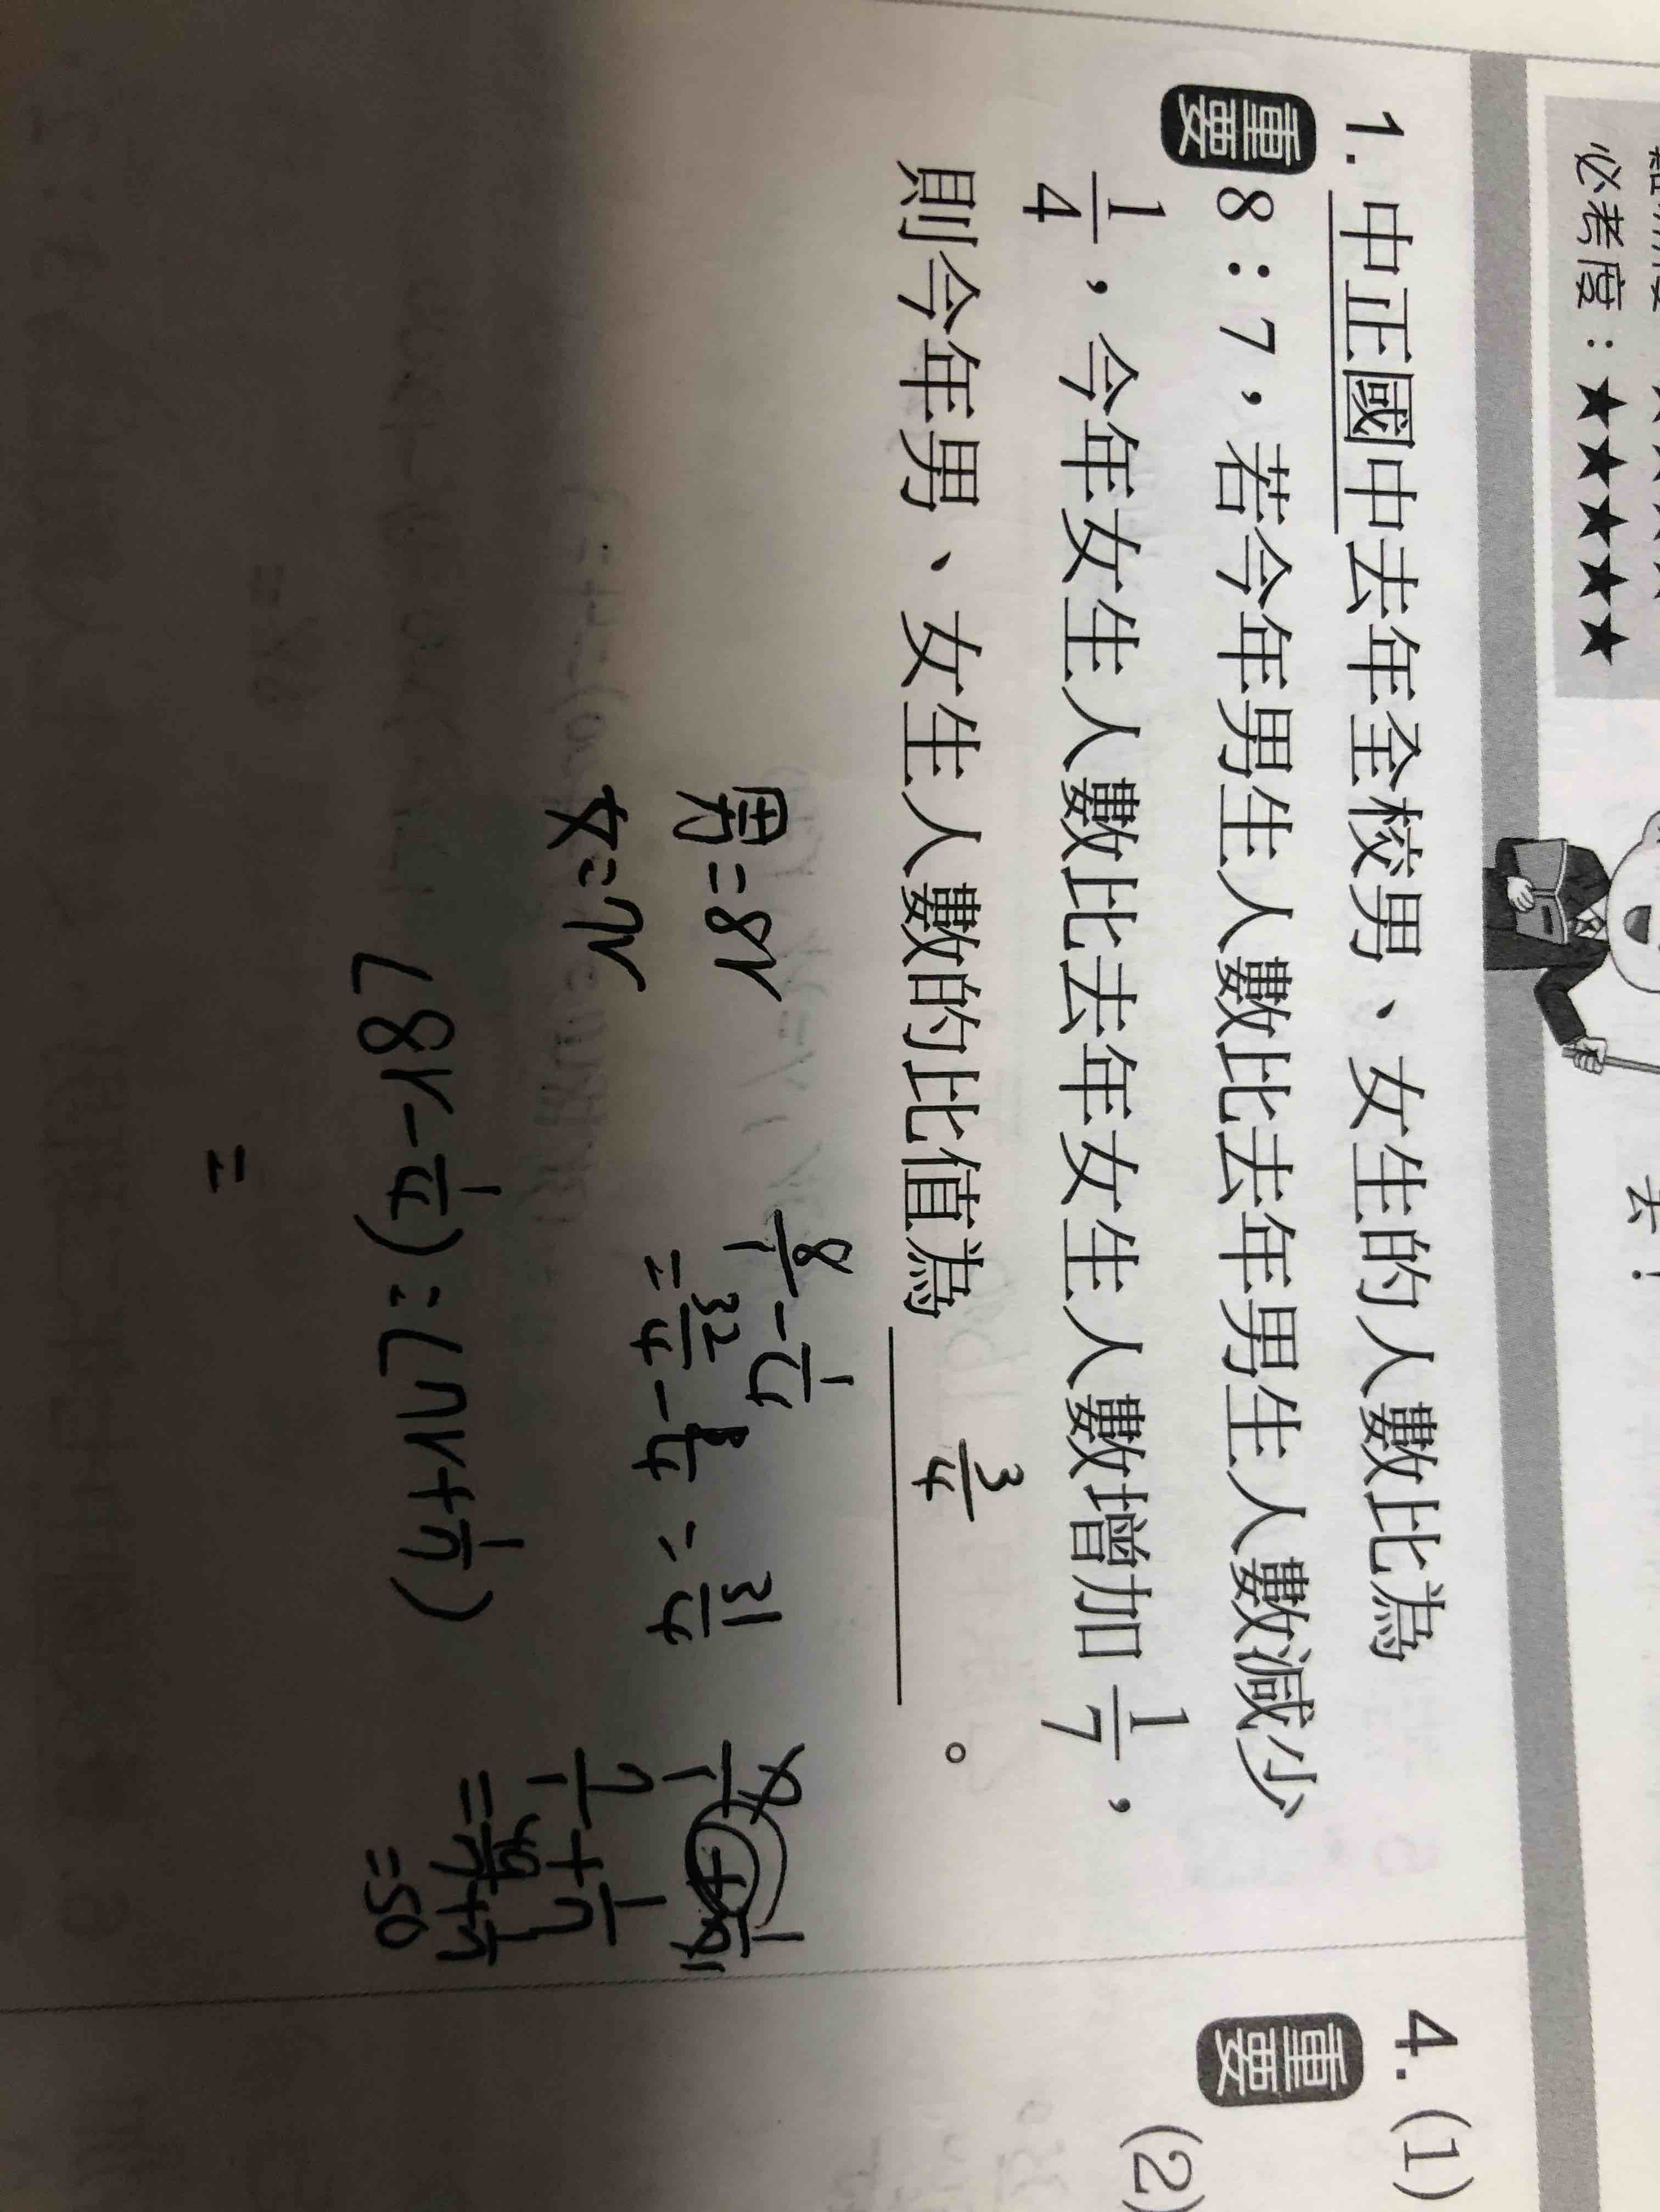 必考度：★★★★★
去！
1. 中正國中去年全校男、女生的人數比為
重要
8：7，若今年男生人數比去年男生人數減少
1/4，今年女生人數比去年女生人數增加 1/7，
則今年男、女生人數的比值為 3/4 。
男=8r
女=7r
8/1 - 1/4
= 32/4 - 1/4 = 31/4
7/1 + 1/7
= 49/7 + 1/7
= 50
(8r - 1/4) = (7r + 1/7)
=
4. (1)
重要
(2)